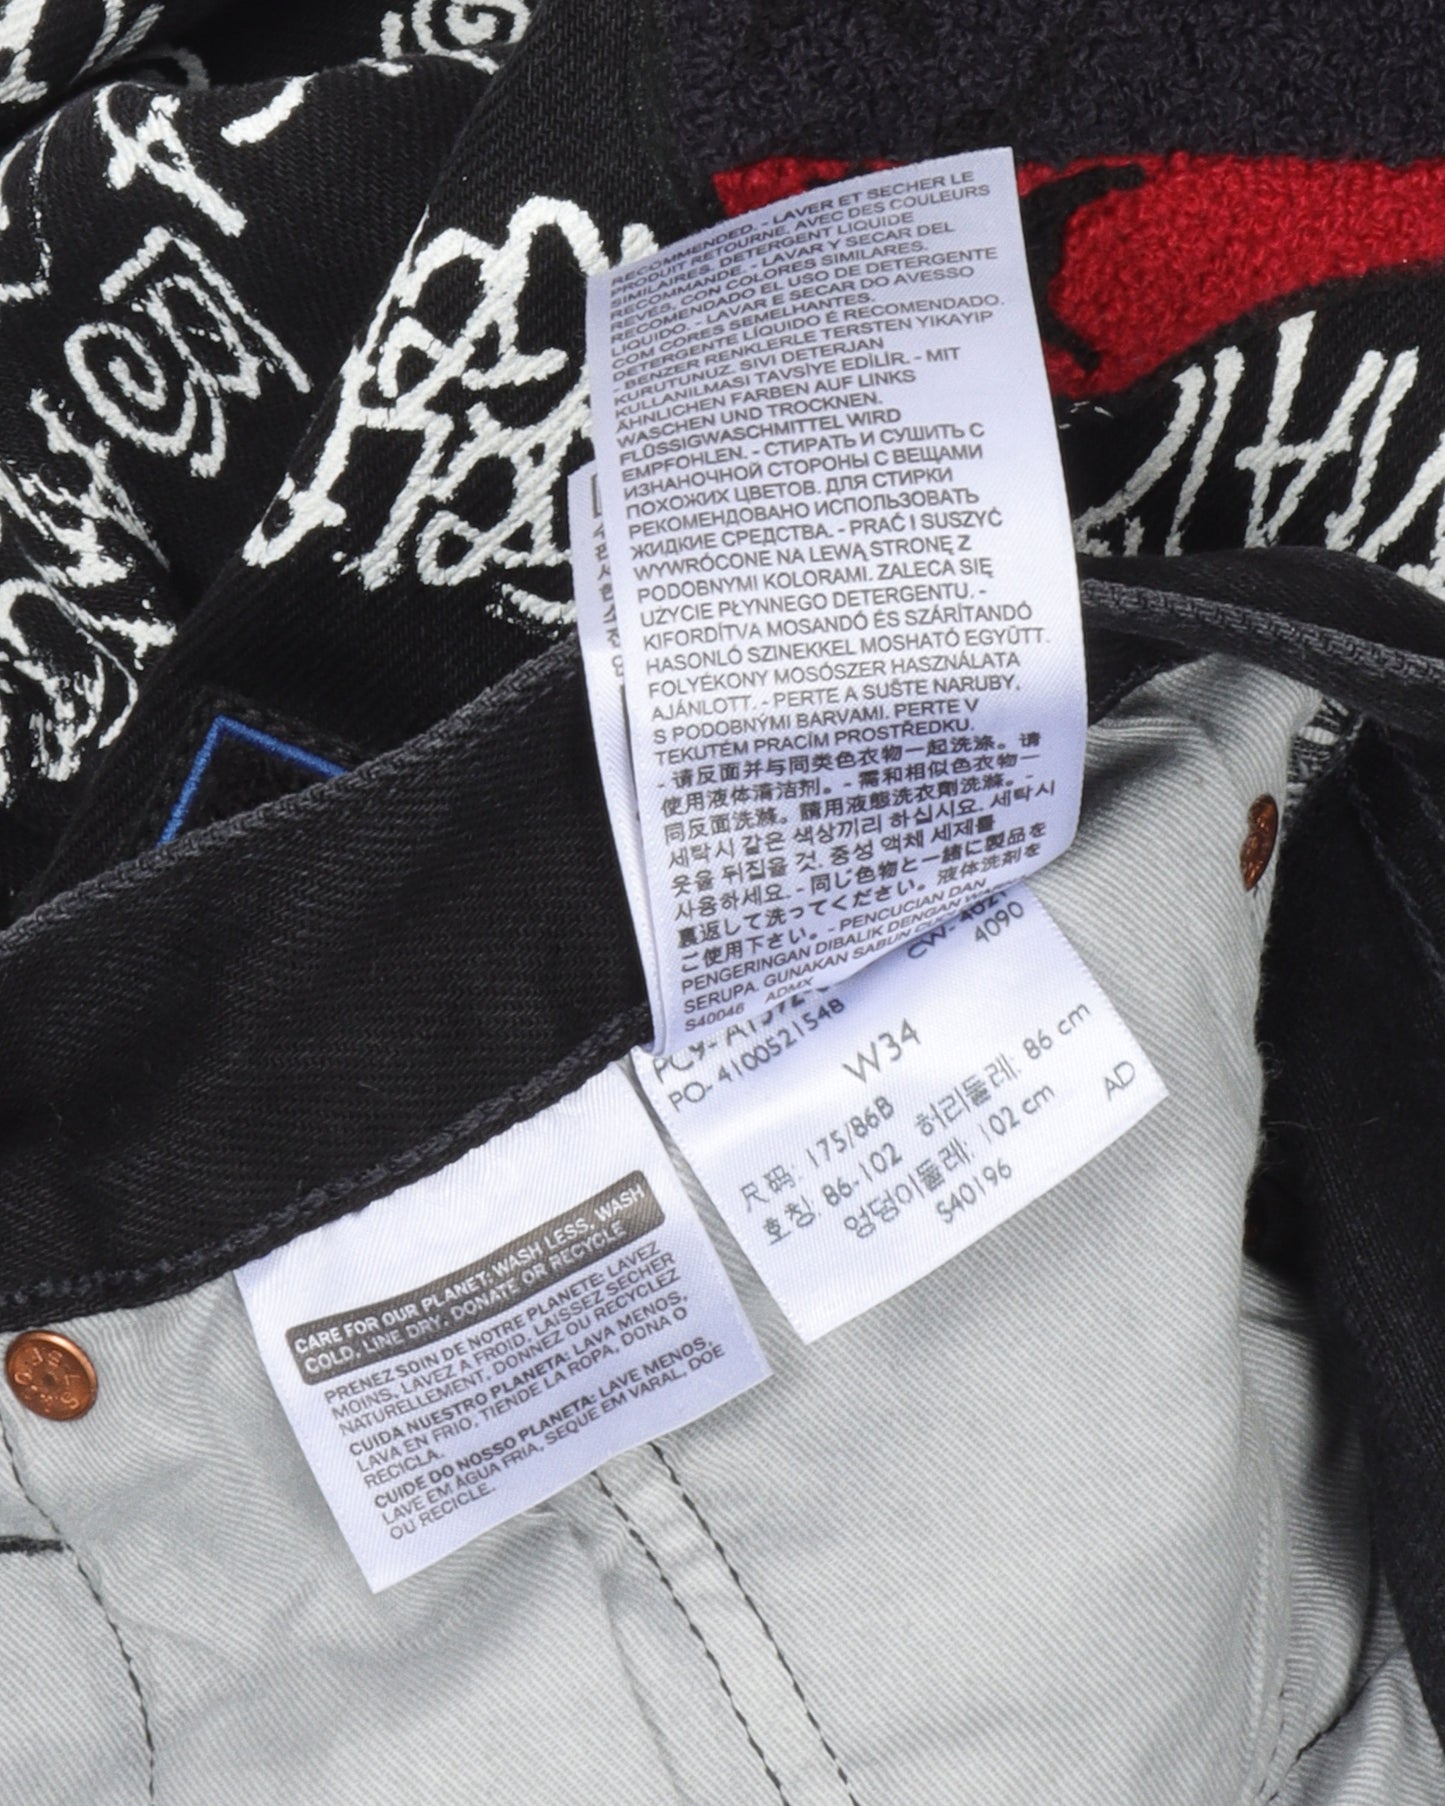 RECOMMENDED. - LAVER ET SECHER LE
PRODUIT RETOURNE, AVEC DES COULEURS
SIMILAIRES. DETERGENT LIQUIDE
RECOMMANDE. - LAVAR Y SECAR DEL
REVÉS, CON COLORES SIMILARES.
RECOMENDADO EL USO DE DETERGENTE
LIQUIDO. - LAVAR E SECAR DO AVESSO
COM CORES SEMELHANTES.
DETERGENTE LÍQUIDO É RECOMENDADO.
- BENZER RENKLERLE TERSTEN YIKAYIP
KURUTUNUZ. SIVI DETERJAN
KULLANILMASI TAVSİYE EDİLİR. - MIT
ÄHNLICHEN FARBEN AUF LINKS
WASCHEN UND TROCKNEN.
FLÜSSIGWASCHMITTEL WIRD
EMPFOHLEN. - СТИРАТЬ И СУШИТЬ С
ИЗНАНОЧНОЙ СТОРОНЫ С ВЕЩАМИ
ПОХОЖИХ ЦВЕТОВ. ДЛЯ СТИРКИ
РЕКОМЕНДОВАНО ИСПОЛЬЗОВАТЬ
ЖИДКИЕ СРЕДСТВА. - PRAĆ I SUSZYĆ
WYWRÓCONE NA LEWĄ STRONĘ Z
PODOBNYMI KOLORAMI. ZALECA SIĘ
UŻYCIE PŁYNNEGO DETERGENTU. -
KIFORDÍTVA MOSANDÓ ÉS SZÁRÍTANDÓ
HASONLÓ SZINEKKEL MOSHATÓ EGYÜTT.
FOLYÉKONY MOSÓSZER HASZNÁLATA
AJÁNLOTT. - PERTE A SUŠTE NARUBY,
S PODOBNÝMI BARVAMI. PERTE V
TEKUTÉM PRACÍM PROSTŘEDKU.
- 请反面并与同类色衣物一起洗涤。请
使用液体清洁剂。- 需和相似色衣物一
同反面洗滌。請用液態洗衣劑洗滌。-
세탁시 같은 색상끼리 하십시요. 세탁시
옷을 뒤집을 것. 중성 액체 세제를
사용하세요. - 同じ色物と一緒に製品を
裏返して洗ってください。液体洗剤を
ご使用下さい。- PENCUCIAN DAN
PENGERINGAN DIBALIK DENGAN
SERUPA. GUNAKAN SABUN
S40046 ADMX
4090
PO- 4100521548
W34
尺码: 175/86B
호칭: 86-102 허리둘레: 86 cm
엉덩이둘레: 102 cm
S40196 AD
CARE FOR OUR PLANET: WASH LESS, WASH
COLD, LINE DRY, DONATE OR RECYCLE
PRENEZ SOIN DE NOTRE PLANETE: LAVEZ
MOINS, LAVEZ A FROID, LAISSEZ SECHER
NATURELLEMENT, DONNEZ OU RECYCLEZ
CUIDA NUESTRO PLANETA: LAVA MENOS,
LAVA EN FRIO, TIENDE LA ROPA, DONA O
RECICLA.
CUIDE DO NOSSO PLANETA: LAVE MENOS,
LAVE EM ÁGUA FRIA, SEQUE EM VARAL, DOE
OU RECICLE.